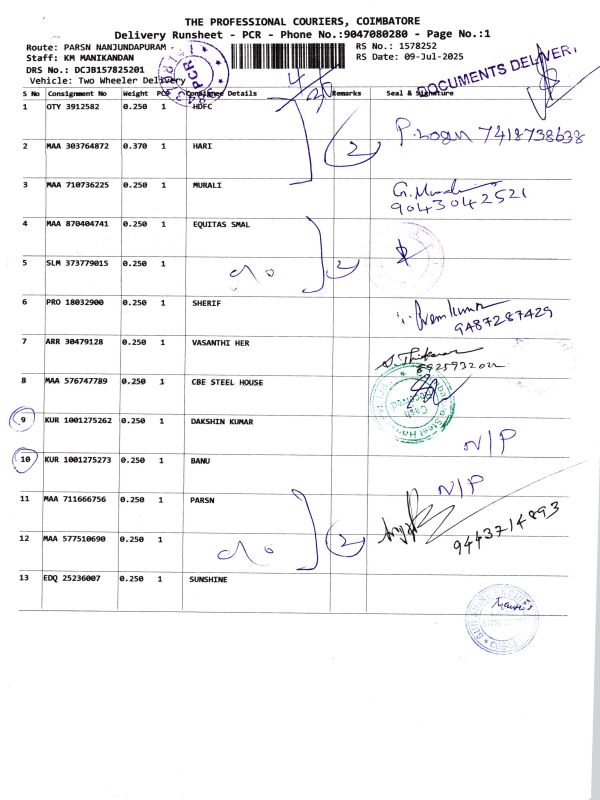 THE PROFESSIONAL COURIERS, COIMBATORE
Delivery Runsheet - PCR - Phone No.:9047080280 - Page No.:1
Route: PARSN NANJUNDAPURAM -
RS No.: 1578252
Staff: KM MANIKANDAN
RS Date: 09-Jul-2025
DRS No.: DCJB157825201
Vehicle: Two Wheeler Delivery
PCR
DOCUMENTS DELIVER
S No Consignment No Weight PCS Consignee Details Remarks Seal & Signature
1 OTY 3912582 0.250 1 HDFC
P. Logu 7418738638
2 MAA 303764872 0.370 1 HARI
2
3 MAA 710736225 0.250 1 MURALI
9043042521
4 MAA 870404741 0.250 1 EQUITAS SMAL
5 SLM 373779015 0.250 1
2
6 PRO 18032900 0.250 1 SHERIF
9487287429
7 ARR 30479128 0.250 1 VASANTHI HER
8925932022
8 MAA 576747789 0.250 1 CBE STEEL HOUSE
Cash
Received
9 KUR 1001275262 0.250 1 DAKSHIN KUMAR
N/P
10 KUR 1001275273 0.250 1 BANU
N/P
11 MAA 711666756 0.250 1 PARSN
9443714893
12 MAA 577510690 0.250 1
2
13 EDQ 25236007 0.250 1 SUNSHINE